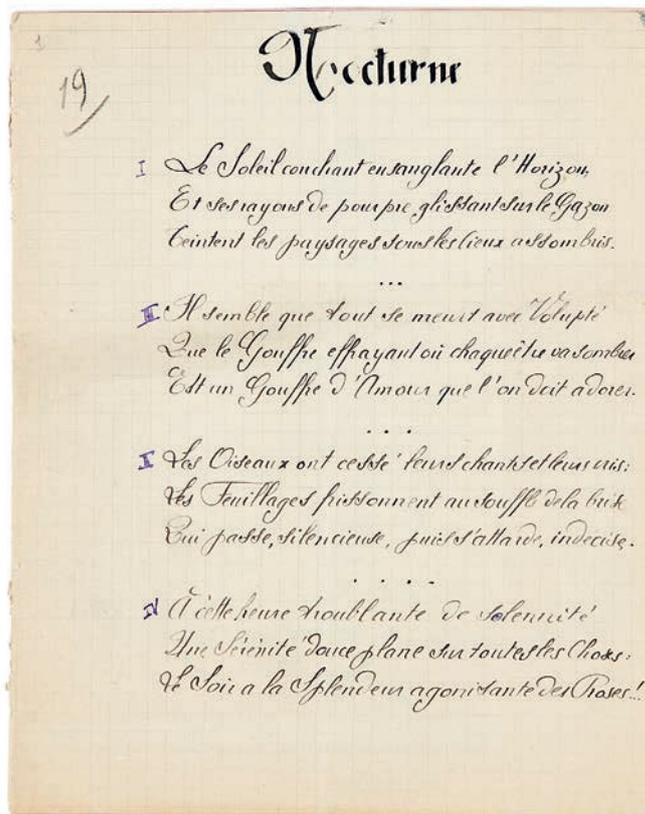 1
19
Nocturne
I Le Soleil couchant ensanglante l'Horizon,
Et ses rayons de pourpre, glissant sur le Gazon
Teintent les paysages sous les Cieux assombris.
...
III Il semble que tout se meurt avec Volupté
Que le Gouffre effrayant où chaque être va sombrer
Est un Gouffre d'Amour que l'on doit adorer.
...
II Les Oiseaux ont cessé leurs chants et leurs cris;
Les Feuillages frissonnent au souffle de la brise
Qui passe, silencieuse, puis s'attarde, indécise.
....
IV À cette heure troublante de solennité
Une Sérénité douce plane sur toutes les Choses;
Le Soir a la Splendeur agonisante des Roses!..